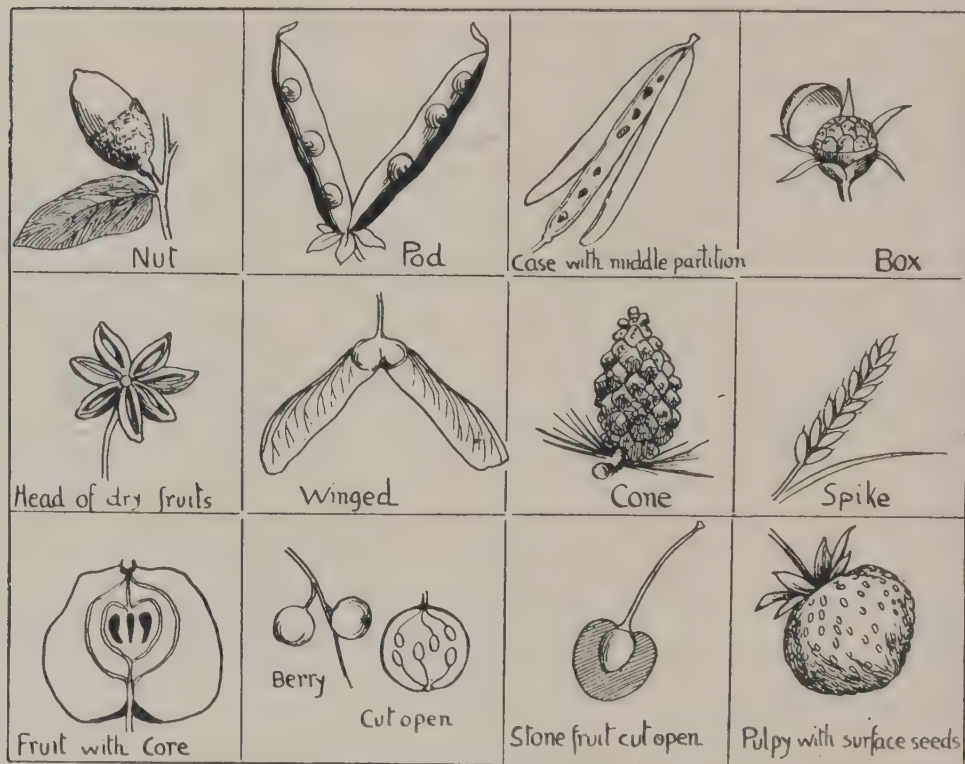 Nut
Pod
Case with middle partition
Box
Head of dry fruits
Winged
Cone
Spike
Fruit with Core
Berry
Cut open
Stone fruit cut open
Pulpy with surface seeds